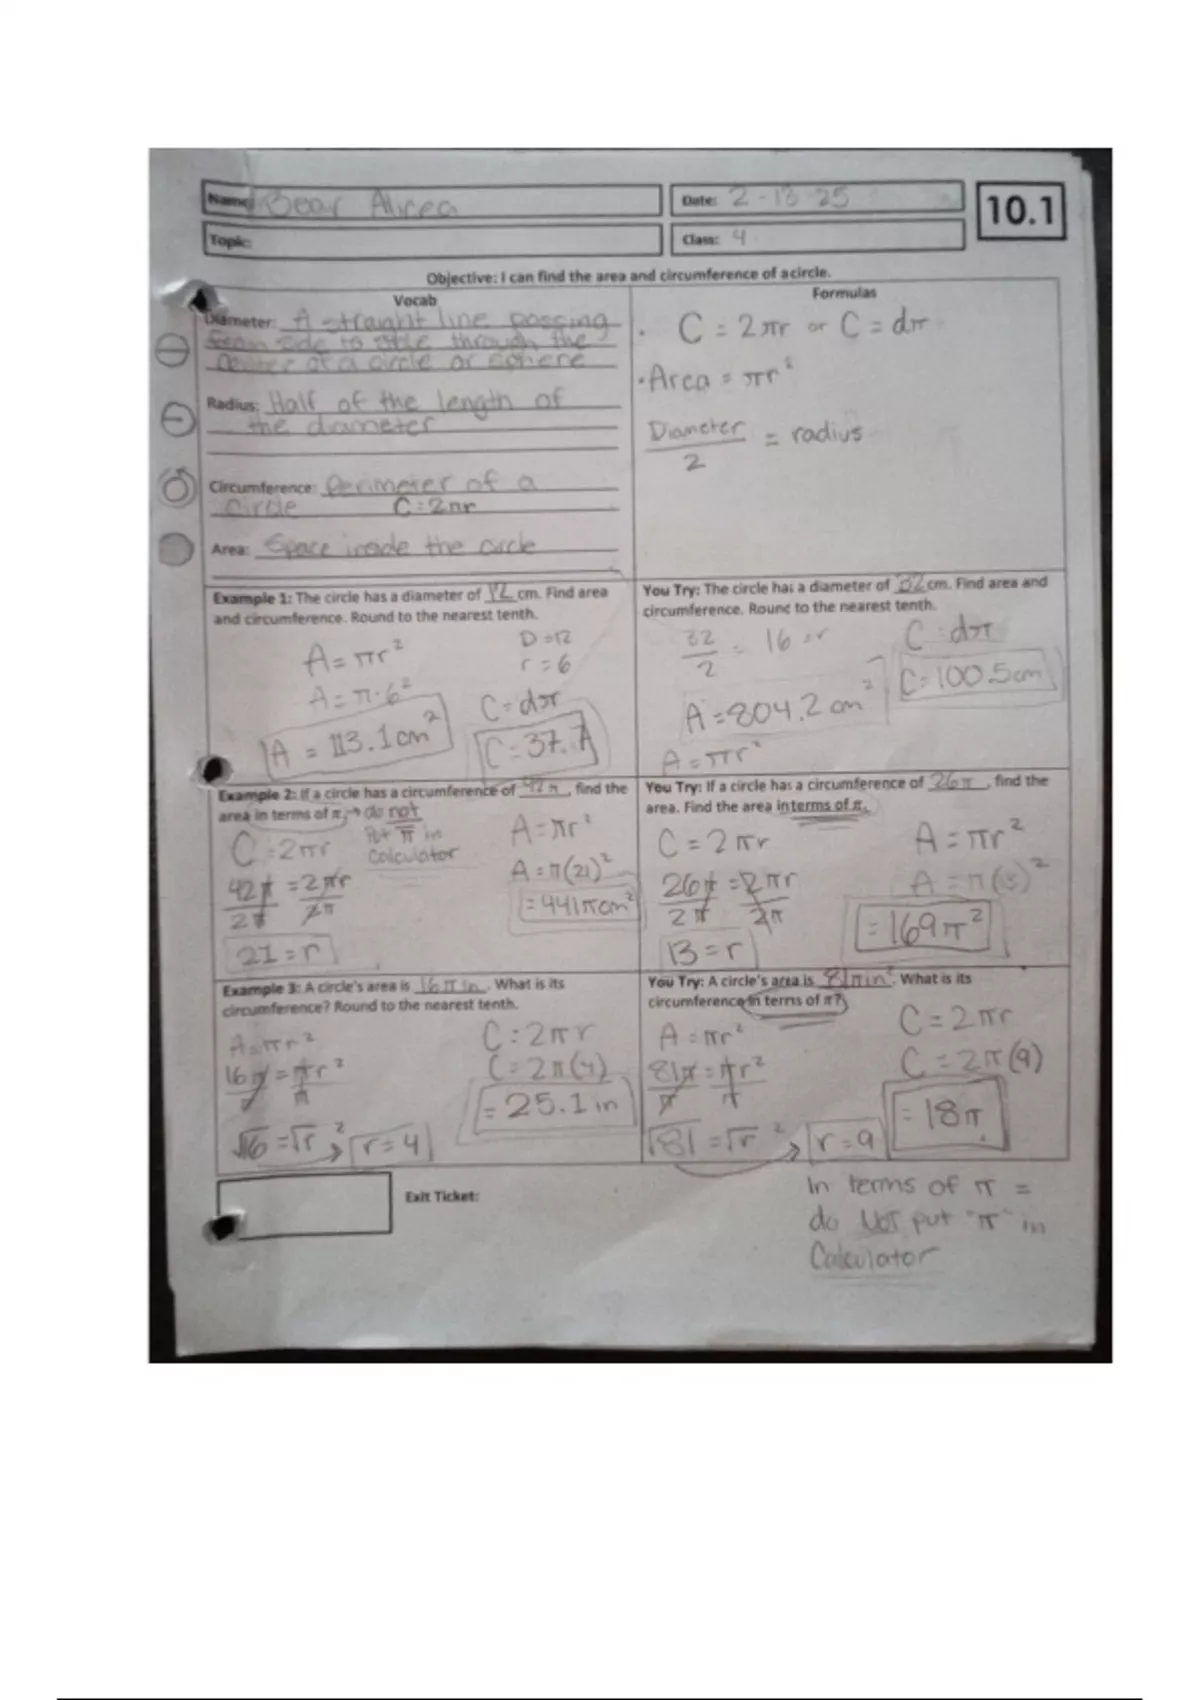 Name: Bear
Date: 2-13-25
10.1
Topic:
Class: 4
Objective: I can find the area and circumference of a circle.
Vocab
Diameter: A straight line passing
from side to side through the
center of a circle or sphere
Radius: Half of the length of
the diameter
Circumference: Perimeter of a
circle C=2πr
Area: Space inside the circle
Formulas
• C = 2πr or C = dπ
• Area = πr²
Diameter
2
= radius
Example 1: The circle has a diameter of 12 cm. Find area
and circumference. Round to the nearest tenth.
A = πr²
D = 12
r = 6
A = π·6²
C = dπ
A = 113.1 cm²
C = 37.7
You Try: The circle has a diameter of 32 cm. Find area and
circumference. Round to the nearest tenth.
32
2
= 16 = r
C = dπ
C = 100.5 cm
A = 804.2 cm²
A = πr²
Example 2: If a circle has a circumference of 42π, find the
area in terms of π. → do not
Put π in
calculator
C = 2πr
42π = 2πr
2π 2π
21 = r
A = πr²
A = π(21)²
= 441π cm²
You Try: If a circle has a circumference of 26π, find the
area. Find the area in terms of π.
C = 2πr
26π = 2πr
2π 2π
13 = r
A = πr²
= 169π²
Example 3: A circle's area is 16π in. What is its
circumference? Round to the nearest tenth.
A = πr²
16π = πr²
π π
√16 = √r² → r = 4
C = 2πr
C = 2π(4)
= 25.1 in
You Try: A circle's area is 81π in². What is its
circumference in terms of π?
A = πr²
81π = πr²
π π
√81 = √r² → r = 9
C = 2πr
C = 2π(9)
= 18π
Exit Ticket:
In terms of π =
do NOT put "π" in
Calculator